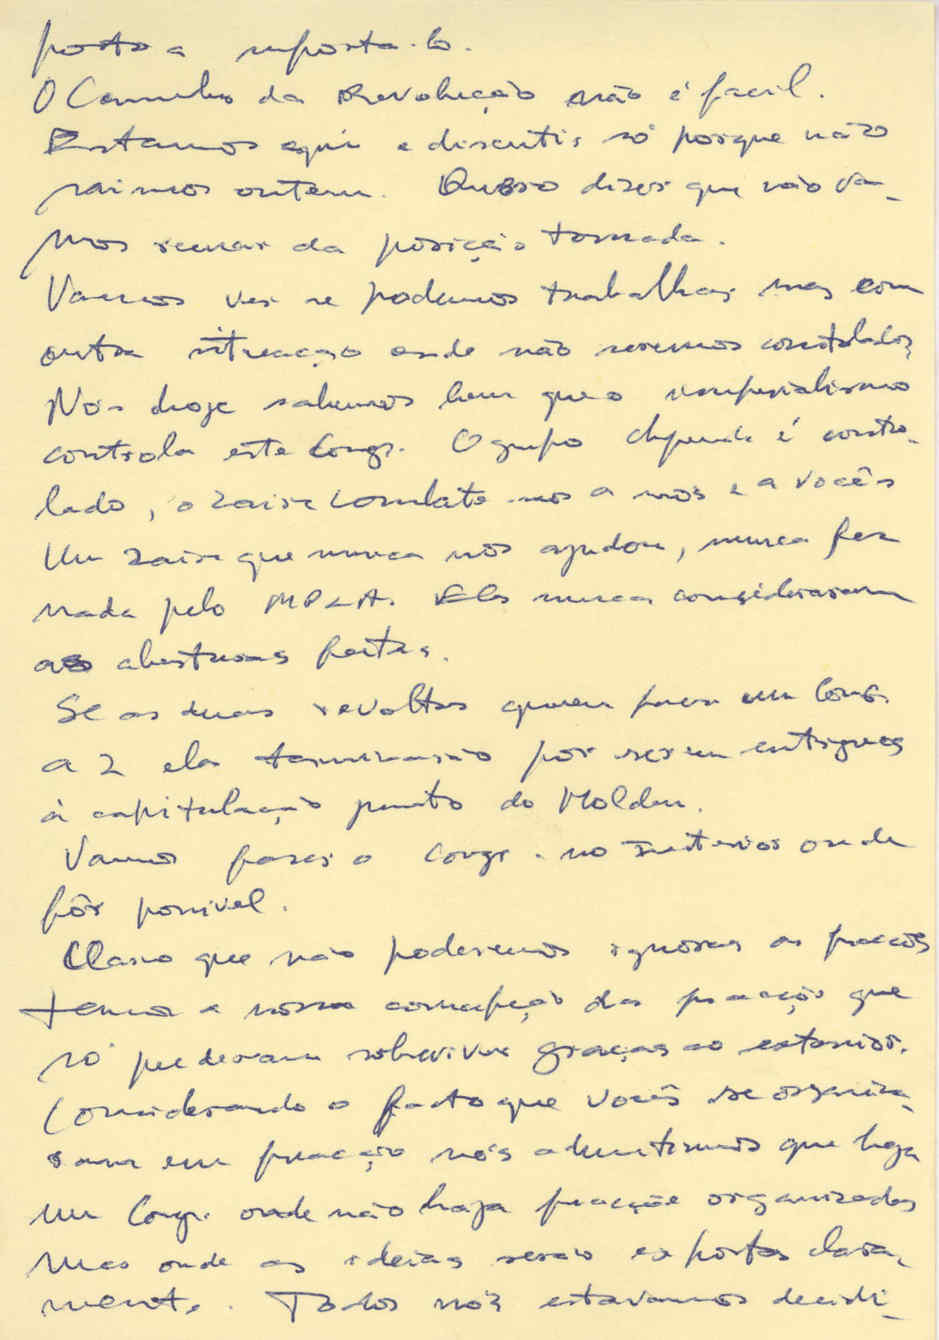 posto a suporta-lo.
O Caminho da Revolução não é facil.
Estamos aqui a discutir só porque não
saimos ontem. Quero dizer que não va-
mos recuar da posição tomada.
Vamos ver se podemos trabalhar mas com
outra situação onde não seremos controlados
Nós hoje sabemos bem que o imperialismo
controla este Congr. O grupo chipenda é contro-
lado, o zaire combate-nos a nós e a vocês
Um zaire que nunca nos ajudou, nunca fez
nada pelo MPLA. Eles nunca consideraram
as aberturas feitas.
Se as duas revoltas querem fazer um Congr.
a 2 ela terminarão por serem entregues
à capitulação junto do Holden.
Vamos fazer o Congr. no Interior onde
fôr possivel.
Claro que não poderemos ignorar as fracções
temos a nossa concepção das fracção que
só puderam sobreviver graças ao exterior.
Considerando o facto que vocês se organiza-
ram em fracção nós admitimos que haja
um Congr. onde não haja fracções organizadas
mas onde as ideias serão expostas clara-
mente. Todos nós estavamos decidi-